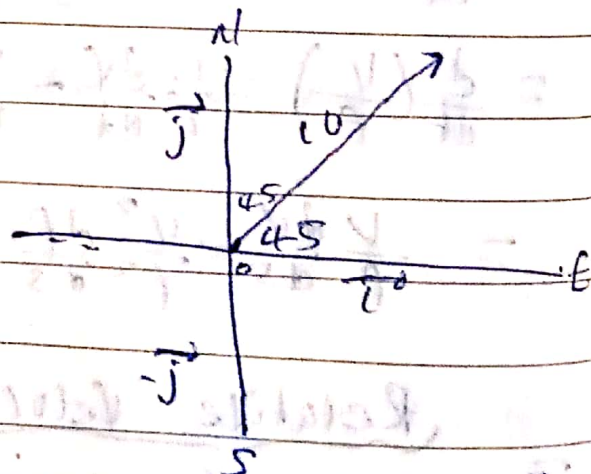 N
j
10
45
45
E
o
i
-j
S